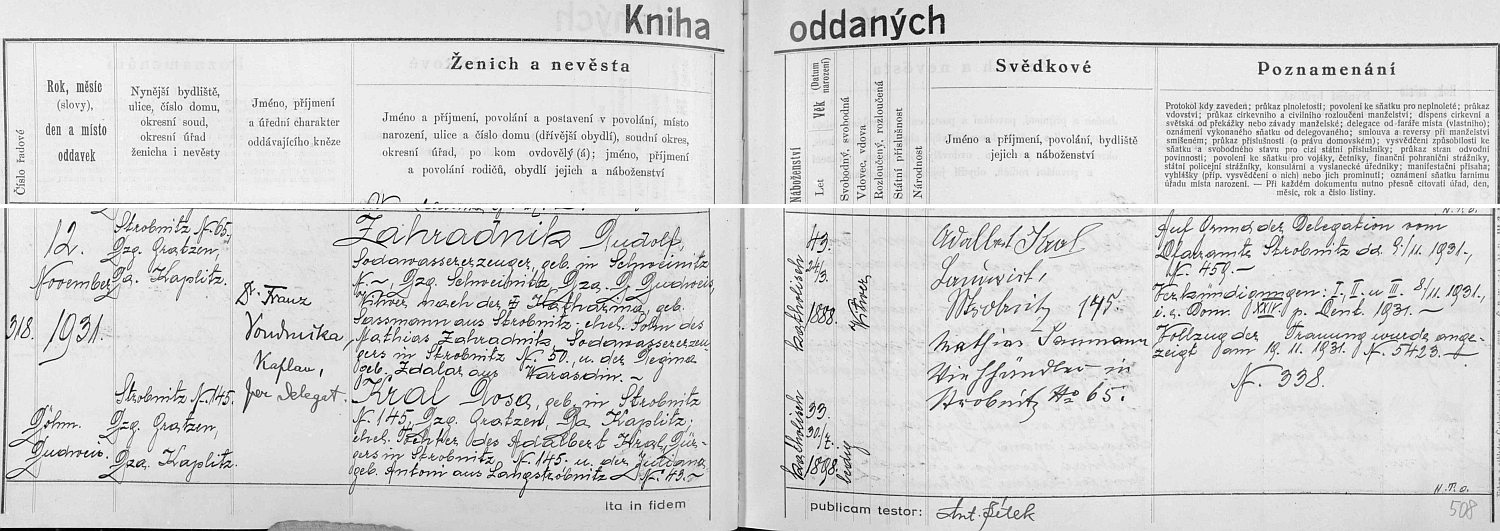 Kniha oddaných
Číslo řadové
Rok, měsíc
(slovy),
den a místo
oddavek
Nynější bydliště,
ulice, číslo domu,
okresní soud,
okresní úřad
ženicha i nevěsty
Jméno, příjmení
a úřední charakter
oddávajícího kněze
Ženich a nevěsta
Jméno a příjmení, povolání a postavení v povolání, místo
narození, ulice a číslo domu (dřívější obydlí), soudní okres,
okresní úřad, po kom ovdověl (á); jméno, příjmení
a povolání rodičů, obydlí jejich a náboženství
Náboženství
Let Věk (Datum narození)
Svobodný, svobodná
Vdovec, vdova
Rozloučený, rozloučená
Státní příslušnost
Národnost
Svědkové
Jméno a příjmení, povolání, bydliště
jejich a náboženství
Poznamenání
Protokol kdy zaveden; průkaz plnoletosti; povolení ke sňatku pro neplnoleté; průkaz
vdovství; průkaz církevního a civilního rozloučení manželství; dispens církevní a
světská od překážky nebo závady manželské; delegace od faráře místa (vlastního);
oznámení vykonaného sňatku od delegovaného; smlouva a reversy při manželství
smíšeném; průkaz příslušnosti (o právu domovském); vysvědčení způsobilosti ke
sňatku a svobodného stavu pro cizí státní příslušníky; průkaz stran odvodní
povinnosti; povolení ke sňatku pro vojáky, četníky, finanční pohraniční strážníky,
státní policejní strážníky, konsulární a vyslanecké úředníky; manifestační přísaha;
vyhlášky (příp. vysvědčení o nich) nebo jich prominutí; oznámení sňatku farnímu
úřadu místa narození. — Při každém dokumentu nutno přesně citovati úřad, den,
měsíc, rok a číslo listiny.
318.
12.
November
1931.
Böhm.
Budweis.
Strobnitz N. 65.
Gzg. Gratzen,
Gza. Kaplitz.
Strobnitz N. 145.
Gzg. Gratzen,
Gza. Kaplitz.
Dr. Franz
Voudnička
Kaplan,
per delegat.
Zahradnik Rudolf,
Sodawassererzeuger, geb. in Schweinitz
N. –, Gzg. Schweinitz, Gza. B. Budweis,
Witwer nach der Katharina, geb.
Sassmann aus Strobnitz: ehel. Sohn des
Mathias Zahradnik, Sodawassererzeu-
gers in Strobnitz N. 50, u. der Regina
geb. Zdalar aus Warasdin. –
Kral Rosa, geb. in Strobnitz
N. 145, Gzg. Gratzen, Ga Kaplitz;
ehel. Tochter des Adalbert Kral, Bür-
gers in Strobnitz N. 145 u. der Juliana,
geb. Antoni aus Langstrobnitz N. 43. –
katholisch
43.
24/3.
1888.
Witwer
katholisch
33.
1898.
ledig
Adalbert Kral
Landwirt,
Strobnitz 145.
Mathias
Viehhändler in
Strobnitz No 65.
Auf Grund der Delegation vom
Pfaramte Strobnitz dd 9/11 1931,
N. 459. –
Verkündigungen: I., II. u III. 8/11. 1931,
i. e. Dom. XXIV. p. Pent. 1931. –
Vollzug der Trauung wurde ange-
zeigt am 19. 11. 1931. N. 5423.
N. 338.
N. T. O.
Ita in fidem publicam testor:
Ant. Pítek
508